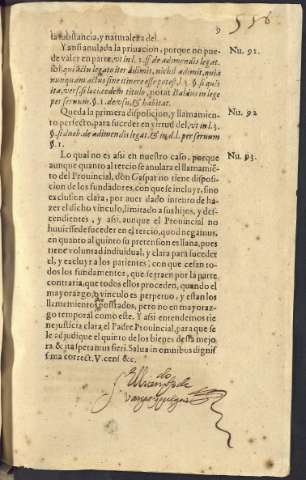 556
la substancia, y naturaleza del.
Y ansi anulada la priuacion, porque no pue-
de valer en parte, vt in l. 2. ff. de adimendis legat.
ibi, qui actu legato iter adimit, nichil adimit, quia
nunquam actus sine itinere esse potest, l. 3. § si quis
ita, vers. si luci eodem titulo, notat Baldus in lege
per seruum, §. 1. de vsu, & habitat.
Nu. 91.
Queda la primera disposicion, y llamamiento
perfecto, para succeder en virtud del, vt in l. 3.
§. si duob. de adimendis legat. & in d. l. per seruum
§. 1.
Nu. 92
Lo qual no es assi en nuestro caso, porque
aunque quanto al tercio se anulara el llamamiẽ-
to del Prouincial, dõn Gaspar no tiene disposi-
cion de los fundadores, con que se incluyr, sino
exclusion clara, por auer dado intento de ha-
zer el dicho vinculo, limitado a sus hijos, y des-
cendientes, y assi aunque el Prouincial no
huuiesse de succeder en el tercio, quod negamus,
en quanto al quinto su pretension es llana, pues
tiene voluntad indiuidual, y clara para succeder
el, y excluyr a los parientes, con que cesan to-
dos los fundamentos, que se traen por la parte
contraria, que todos ellos proceden, quando el
mayorazgo, o vinculo es perpetuo, y estan los
llamamientos postados, pero no en mayoraz-
go temporal como este. Y assi entendemos tie-
ne justicia clara, el Padre Prouincial, para que se
le adjudique el quinto de los bienes desta mejo-
ra & ita speramus fieri. Salua in omnibus dignis
sima correct. V. cens &c.
Nu. 93.